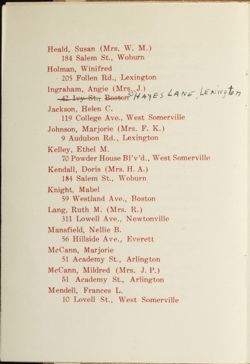 Heald, Susan (Mrs. W. M.)
184 Salem St., Woburn
Holman, Winifred
205 Follen Rd., Lexington
Ingraham, Angie (Mrs. J.)
42 Ivy St., Boston HAYES LANE, LExINgton
Jackson, Helen C.
119 College Ave., West Somerville
Johnson, Marjorie (Mrs. F. K.)
9 Audubon Rd., Lexington
Kelley, Ethel M.
70 Powder House Bl'v'd., West Somerville
Kendall, Doris (Mrs. H. A.)
184 Salem St., Woburn
Knight, Mabel
59 Westland Ave., Boston
Lang, Ruth M. (Mrs. R.)
311 Lowell Ave., Newtonville
Mansfield, Nellie B.
56 Hillside Ave., Everett
McCann, Marjorie
51 Academy St., Arlington
McCann, Mildred (Mrs. J. P.)
51 Academy St., Arlington
Mendell, Frances L.
10 Lovell St., West Somerville